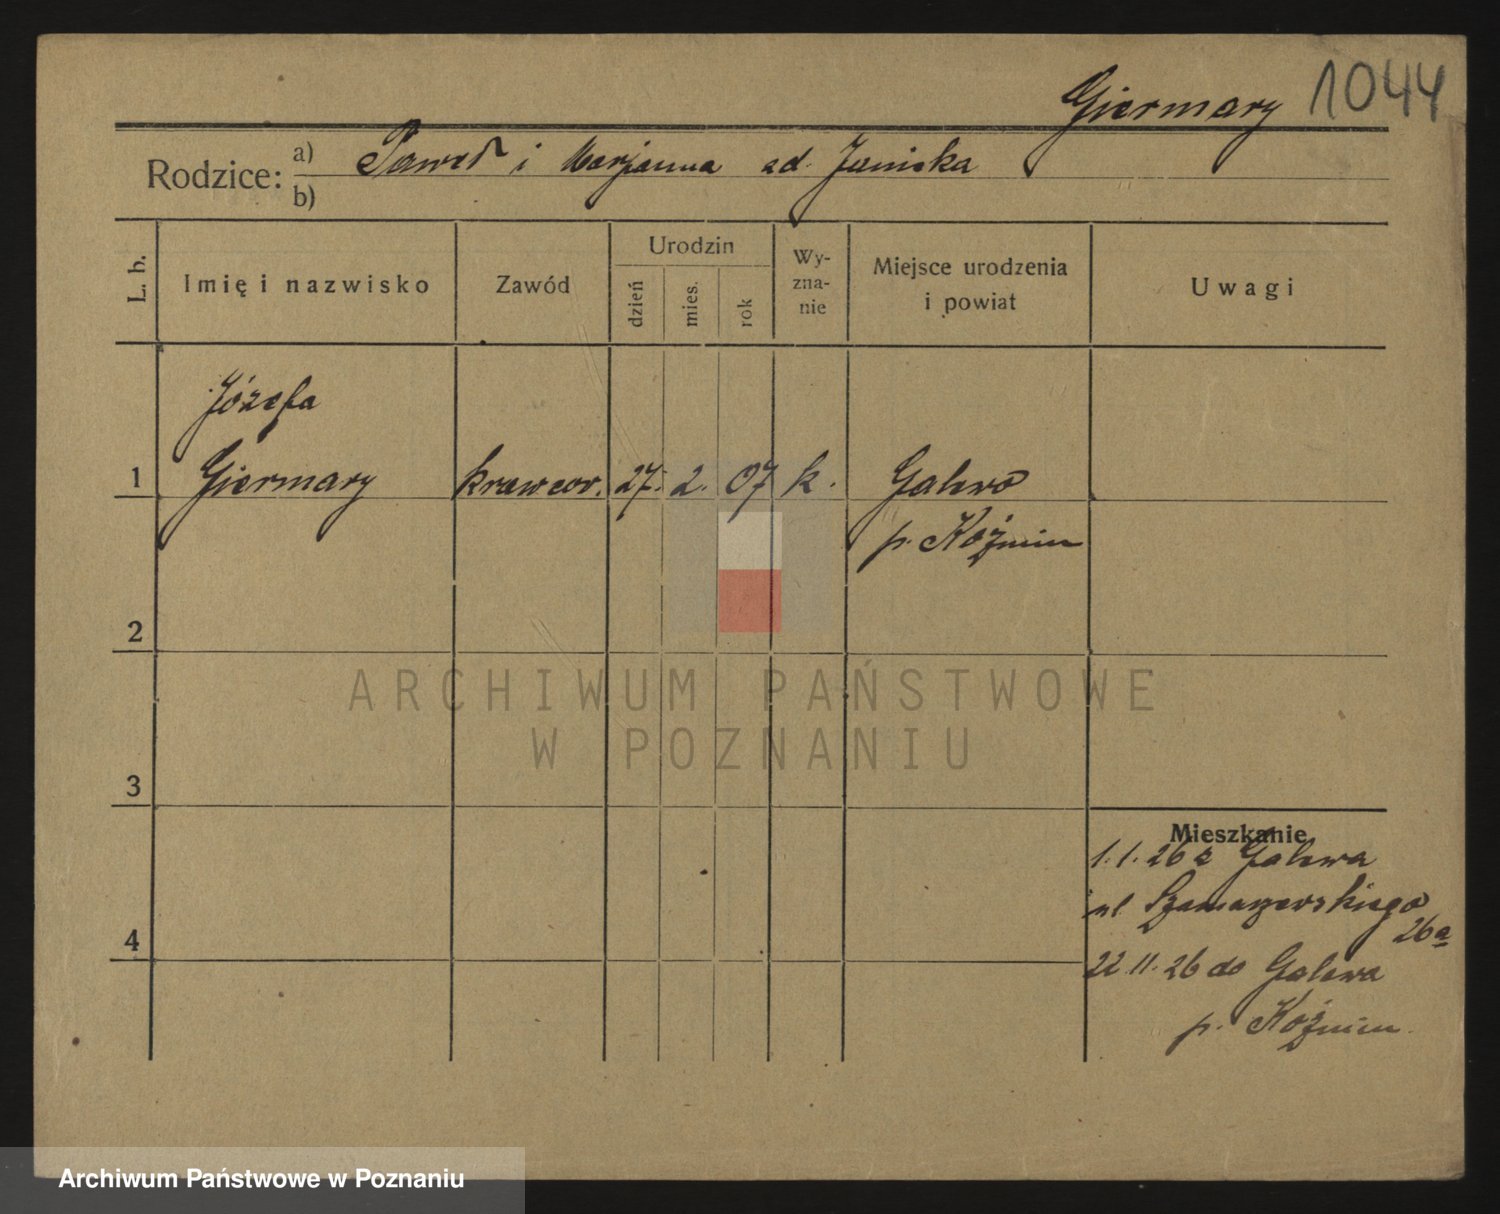 Giermary 1044
Rodzice: a) Paweł i Marjanna zd. Juniska
b)
L. b. Imię i nazwisko Zawód Urodzin dzień mies. rok Wy-zna-nie Miejsce urodzenia i powiat Uwagi
Józefa
1 Giermary krawcow. 27. 2. 07 k. Galewo
p. Koźmin
2
ARCHIWUM PAŃSTWOWE
W POZNANIU
3
Mieszkanie
1.1.26 z Galewa
ul Szamarzewskiego
26a
4
22.11.26 do Galewa
p. Koźmin
Archiwum Państwowe w Poznaniu